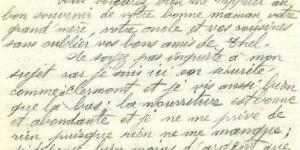 bon souvenir de votre bonne maman votre
grand mère, votre oncle et vos cousines
sans oublier vos bons amis de
Ne soyez pas inquiète à mon
sujet car je suis ici en sécurité
comme clermont et je vis aussi bien
que la bas; la nourriture est bonne
et abondante et je ne me prive de
rien puisque rien ne me manque;
bien moins d'argent que